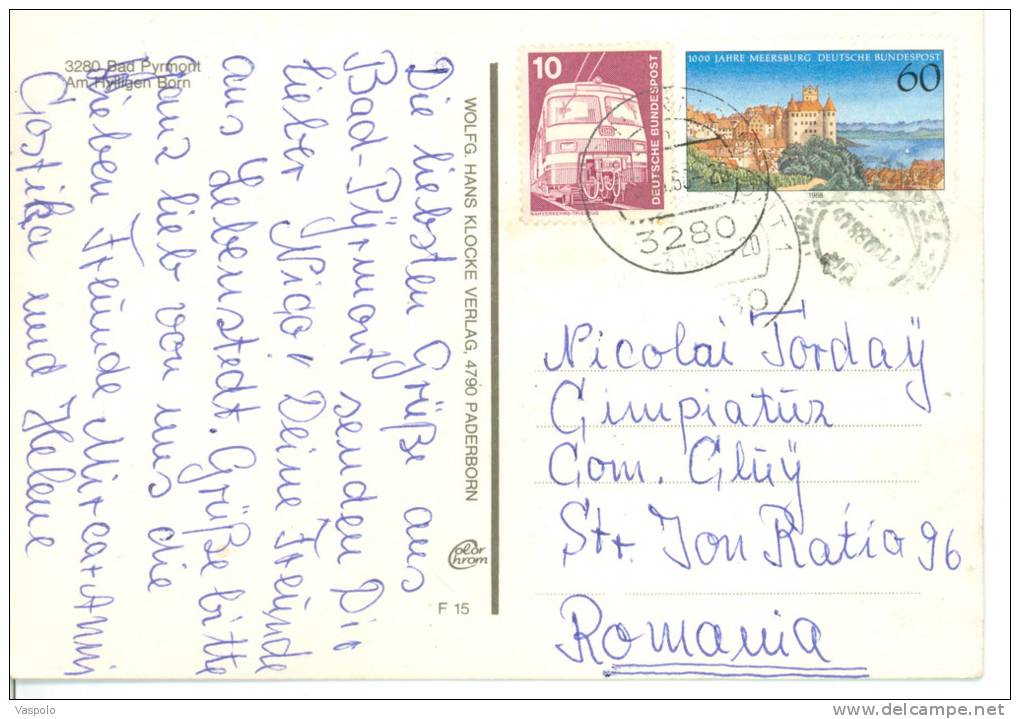 3280 Bad Pyrmont
Am Hylligen Born
Die liebsten Grüße aus
Bad-Pyrmont senden Dir
lieber Nigo" Deine Freunde
aus Lebenstedt. Grüße bitte
ganz lieb von uns die
lieben Freunde Mirca + Anni
Costika und Helene
WOLFG. HANS KLOCKE VERLAG, 4790 PADERBORN
Color
Chrom
F 15
10
DEUTSCHE BUNDESPOST
NAHVERKEHRS-TRIEBZUG
1000 JAHRE MEERSBURG DEUTSCHE BUNDESPOST
60
1988
3280
Nicolai Tordaÿ
Cimpiatūz
Com. Cluÿ
Str Jon Ratio 96
Romania
Vaspolo
www.delcampe.net